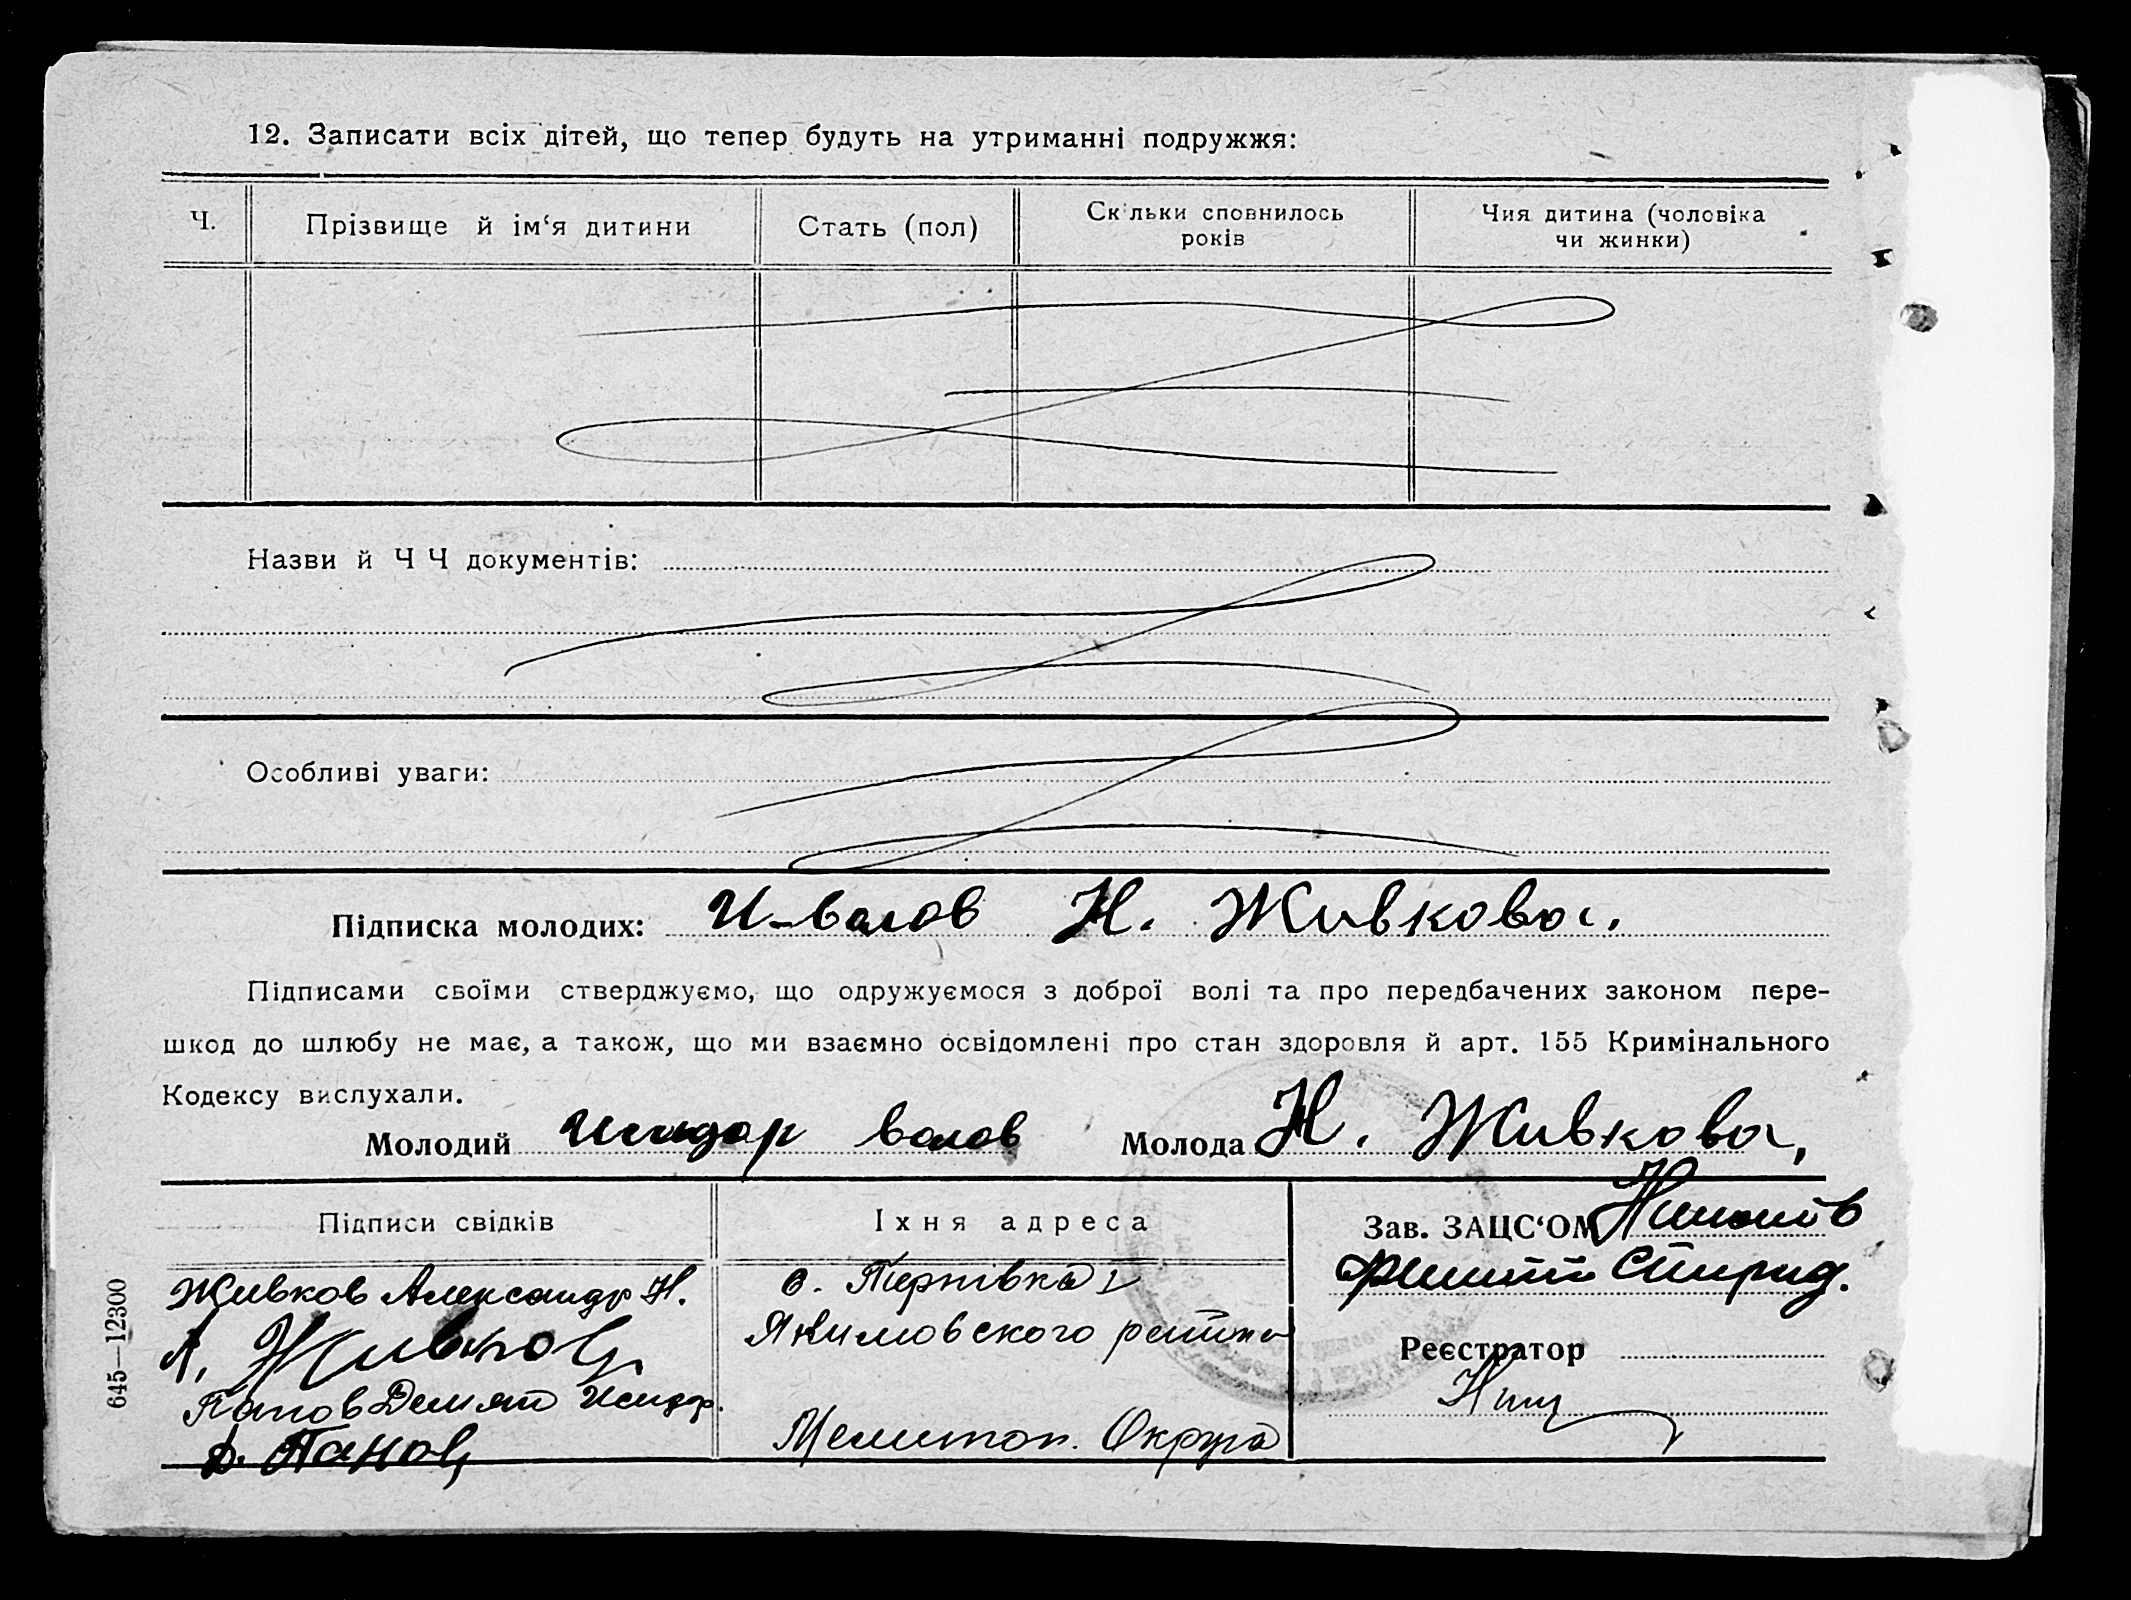 12. Записати всіх дітей, що тепер будуть на утриманні подружжя:
Ч. Прізвище й ім‘я дитини Стать (пол) Скільки сповнилось років Чия дитина (чоловіка чи жинки)
Назви й Ч Ч документів:
Особливі уваги:
Підписка молодих: И-валов Н. Живкова.
Підписами своїми стверджуємо, що одружуємося з доброї волі та про передбачених законом пере-
шкод до шлюбу не має, а також, що ми взаємно освідомлені про стан здоровля й арт. 155 Кримінального
Кодексу вислухали.
Молодий валов Молода Н. Живкова,
Підписи свідків Їхня адреса Зав. ЗАЦС‘ОМ
Живков Александр Н. с.
А. Живков Якимовского района
Реєстратор
Демян Исидор.
Д. Панов Мелитоп. Округа
645—12300